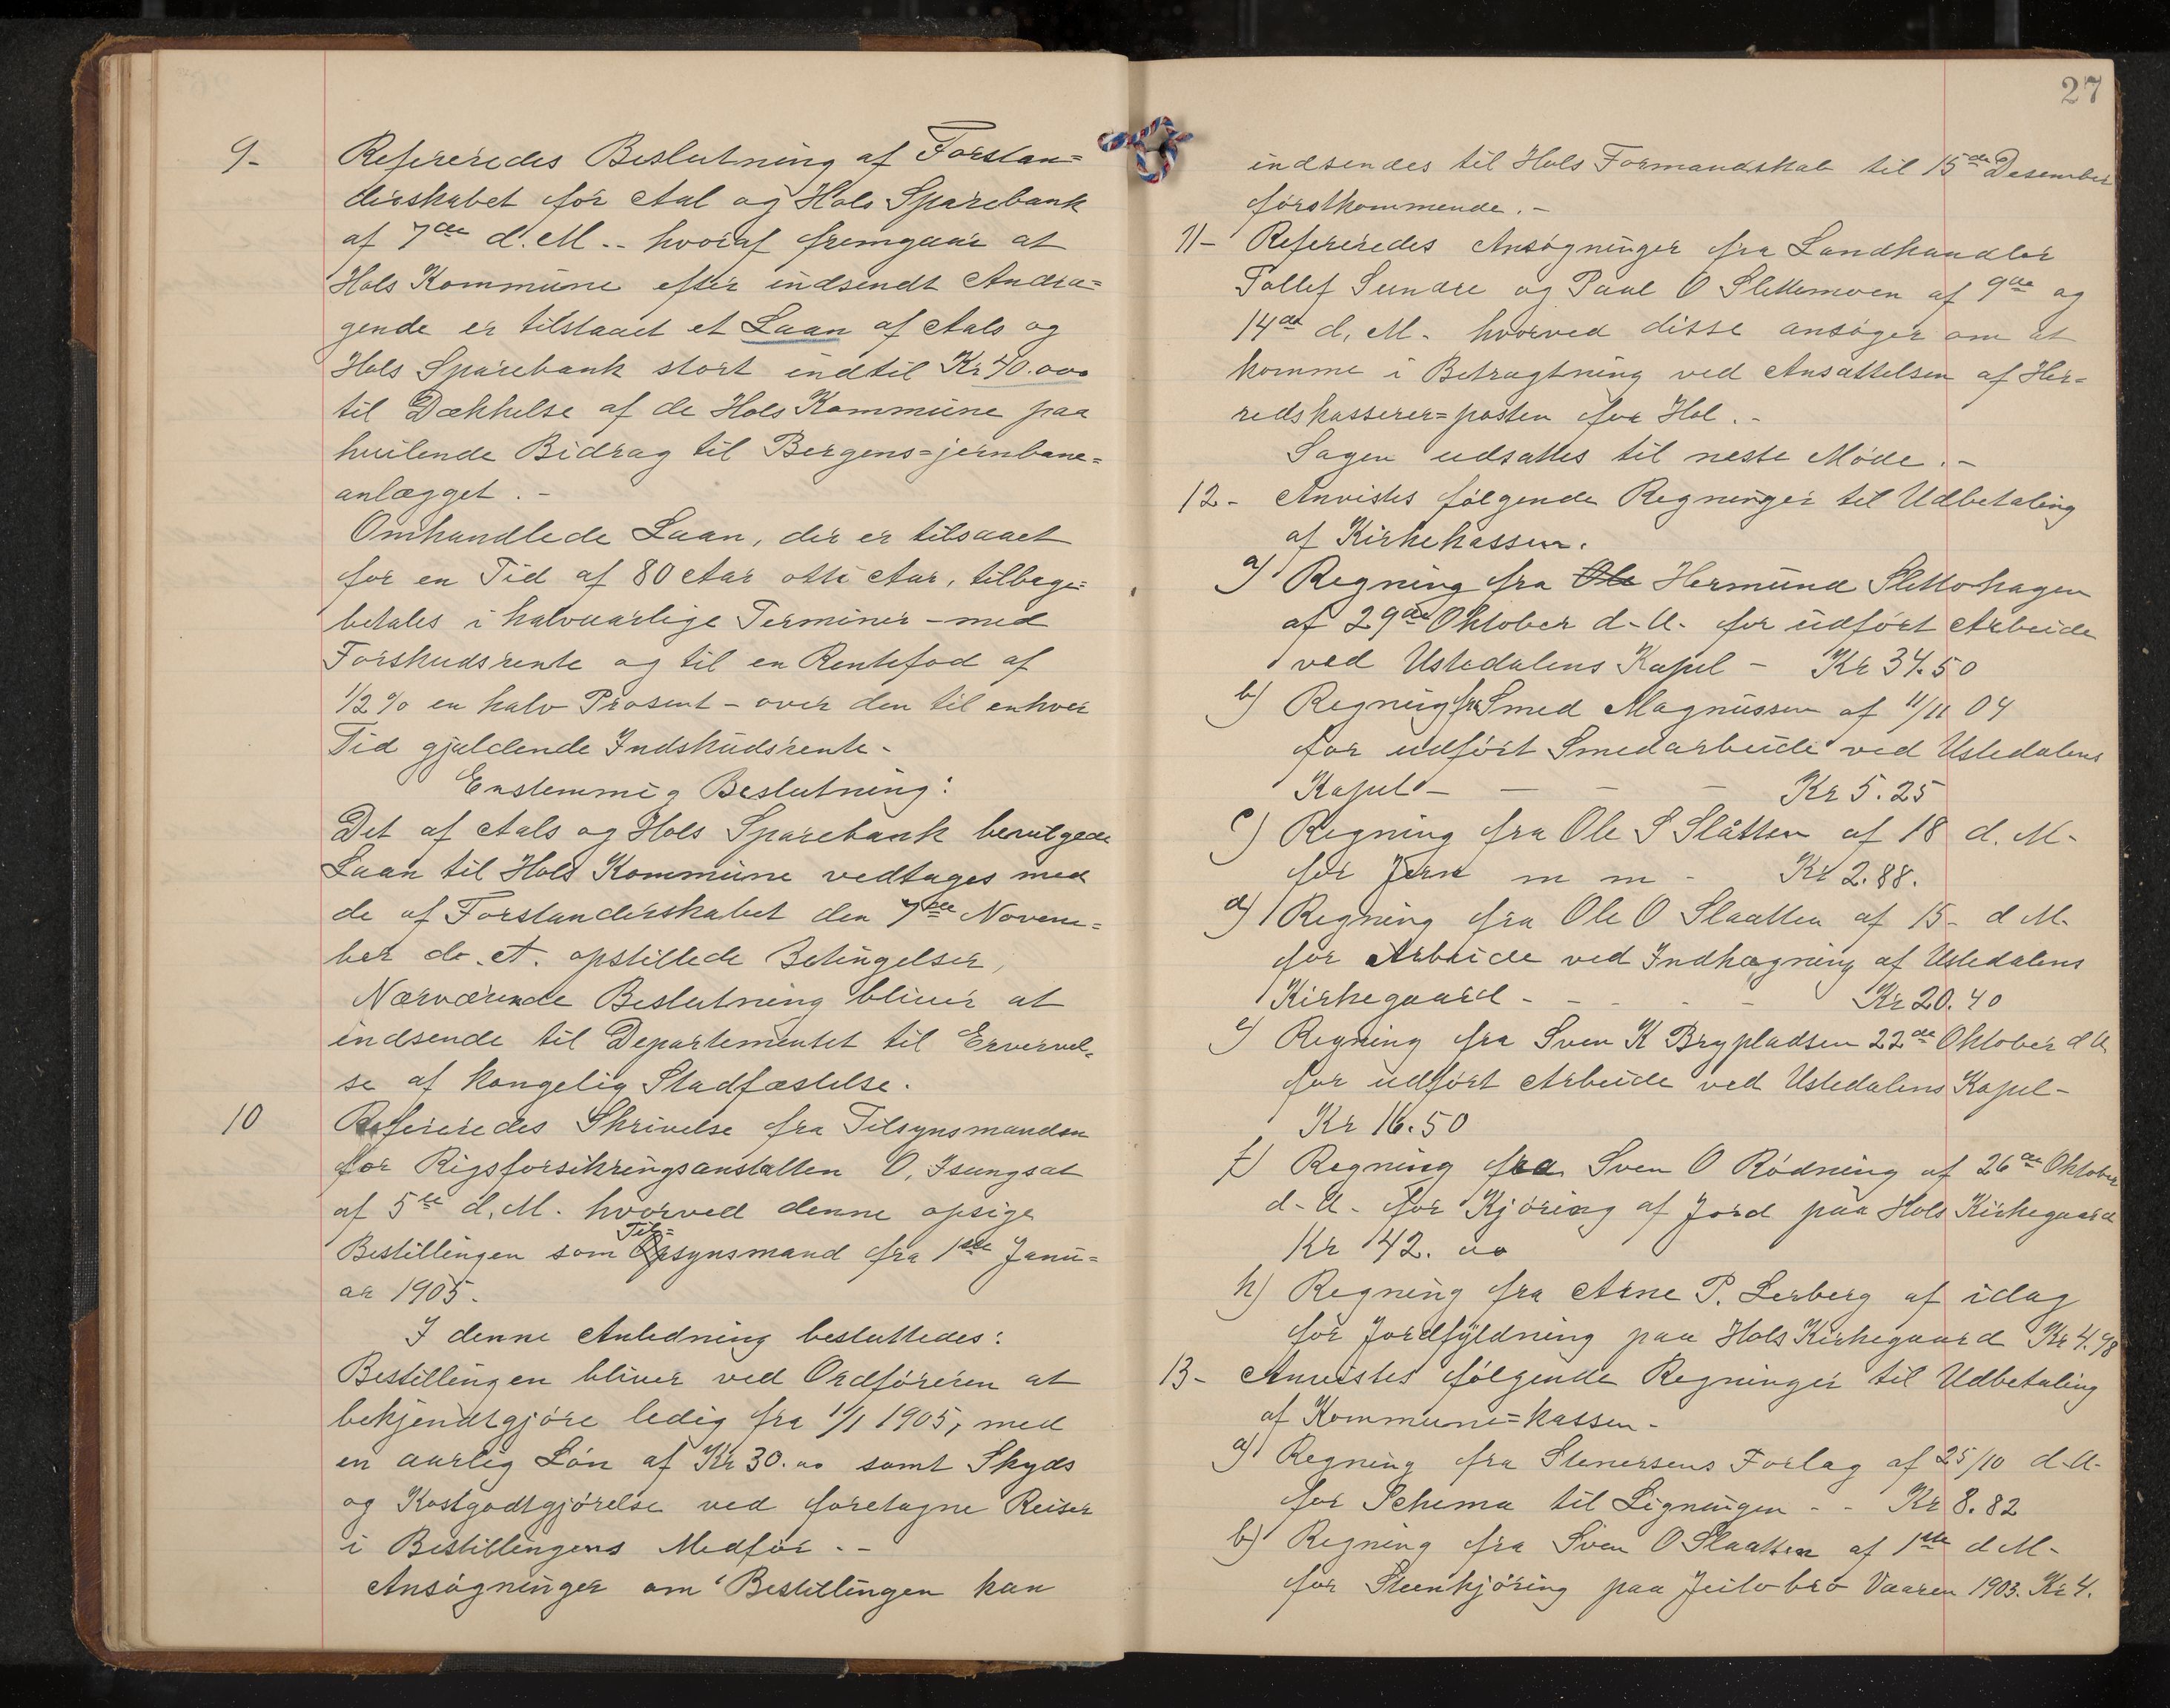 9- Refereredes Beslutning af Forstan=
derskabet for Aal og Hols Sparebank
af 7de d. M. - hvoraf fremgaar at
Hols Kommune efter indsendt Andra=
gende er tilstaaet et Laan af Aals og
Hols Sparebank stort indtil Kr 40.000
til Dækkelse af de Hols Kommune paa
hvilende Bidrag til Bergens=jernbane=
anlægget. -
Omhandlede Laan, der er tilsaaet
for en Tid af 80 Aar otti Aar, tilbage=
betales i halvaarlige Terminer - med
Forskudsrente og til en Rentefod af
1/2 % en halv Prosent - over den til enhver
Tid gjældende Indskudsrente -
Enstemmig Beslutning:
Det af Aals og Hols Sparebank bevilgede
Laan til Hols Kommune vedtages med
de af Forstanderskabet den 7de Novem=
ber d. A. opstillede Betingelser,
Nærværende Beslutning bliver at
indsende til Departementet til Erververl=
se af kongelig Stadfæstelse.
10 Refereredes Skrivelse fra Tilsynsmanden
for Rigsforsikringsanstalten O. Isungset
af 5te d. M. hvorved denne opsige
Til=
Bestillingen som Opsynsmand fra 1ste Janu=
ar 1905.
I denne Anledning besluttedes:
Bestillingen bliver ved Ordføreren at
bekjendtgjøre ledig fra 1/1 1905, med
en aarlig Løn af Kr 30.00 samt Skyds
og Kostgodtgjørelse ved foretagne Reiser
i Bestillingens Medfør. -
Ansøgninger om Bestillingen kan
27
indsendes til Hols Formandskab til 15de Desember
førstkommende. -
11- Refereredes Ansøgninger fra Landhandler
Tollef Sundre og Paul O Slettemoen af 9de og
14de d. M. hvorved disse ansøger om at
komme i Betragtning ved Ansættelsen af Her=
redskasserer=posten for Hol. -
Sagen udsattes til neste Møde. -
12- Anvistes følgende Regninger til Udbetaling
af Kirkekassen.
a) Regning fra Ole Hermund Slettohagen
af 29de Oktober d. A. for udført Arbeide
ved Ustedalens Kapel - Kr 34.50
b) Regning fra Smed Magnussen af 11/11 04
for udført Smedarbeide ved Ustedalens
Kapel - - - - Kr 5.25
c) Regning fra Ole S Slåtten af 18 d. M-
for Jern m m - Kr 2.88.
d) Regning fra Ole O Slaatten af 15- d M-
for Arbeide ved Indhægning af Ustedalens
Kirkegaard - - - - - Kr 20.40
e) Regning fra Sven K Brypladsen 22de Oktober d A
for udført Arbeide ved Ustedalens Kapel -
Kr 16.50
f) Regning fra Sven O Rødning af 26de Oktober
d. A. for Kjøring af Jord paa Hols Kirkegaard
Kr 42. 00
h) Regning fra Arne P. Lerberg af idag
for Jordfyldning paa Hols Kirkegaard Kr 4.98
13- Anvistes følgende Regninger til Udbetaling
af Kommune=kassen -
a) Regning fra Stenersens Forlag af 25/10 d. A.
for Schema til Ligningen - - Kr 8.82
b) Regning fra Sven O Slaatten af 1ste d M-
for Steenkjøring paa Jeilo bro Vaaren 1903. Kr 4.